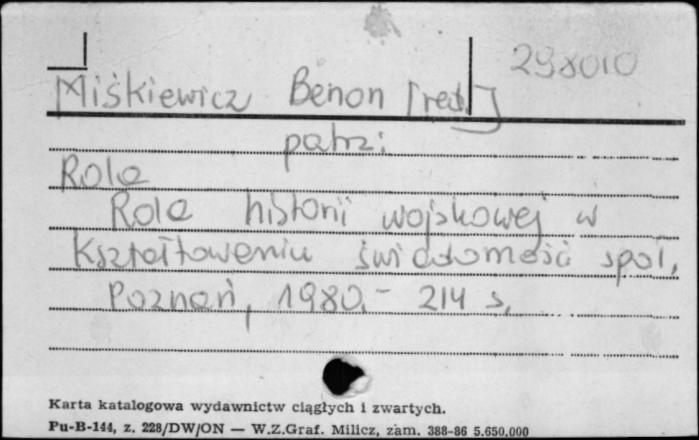 298010
Miśkiewicz Benon [red.]
patrz:
Rola
Rola historii wojskowej w
kształtowaniu świadomości społ.
Poznań, 1980.- 214 s.
Karta katalogowa wydawnictw ciągłych i zwartych.
Pu-B-144, z. 228/DW/ON — W.Z.Graf. Milicz, zam. 388-86 5.650.000